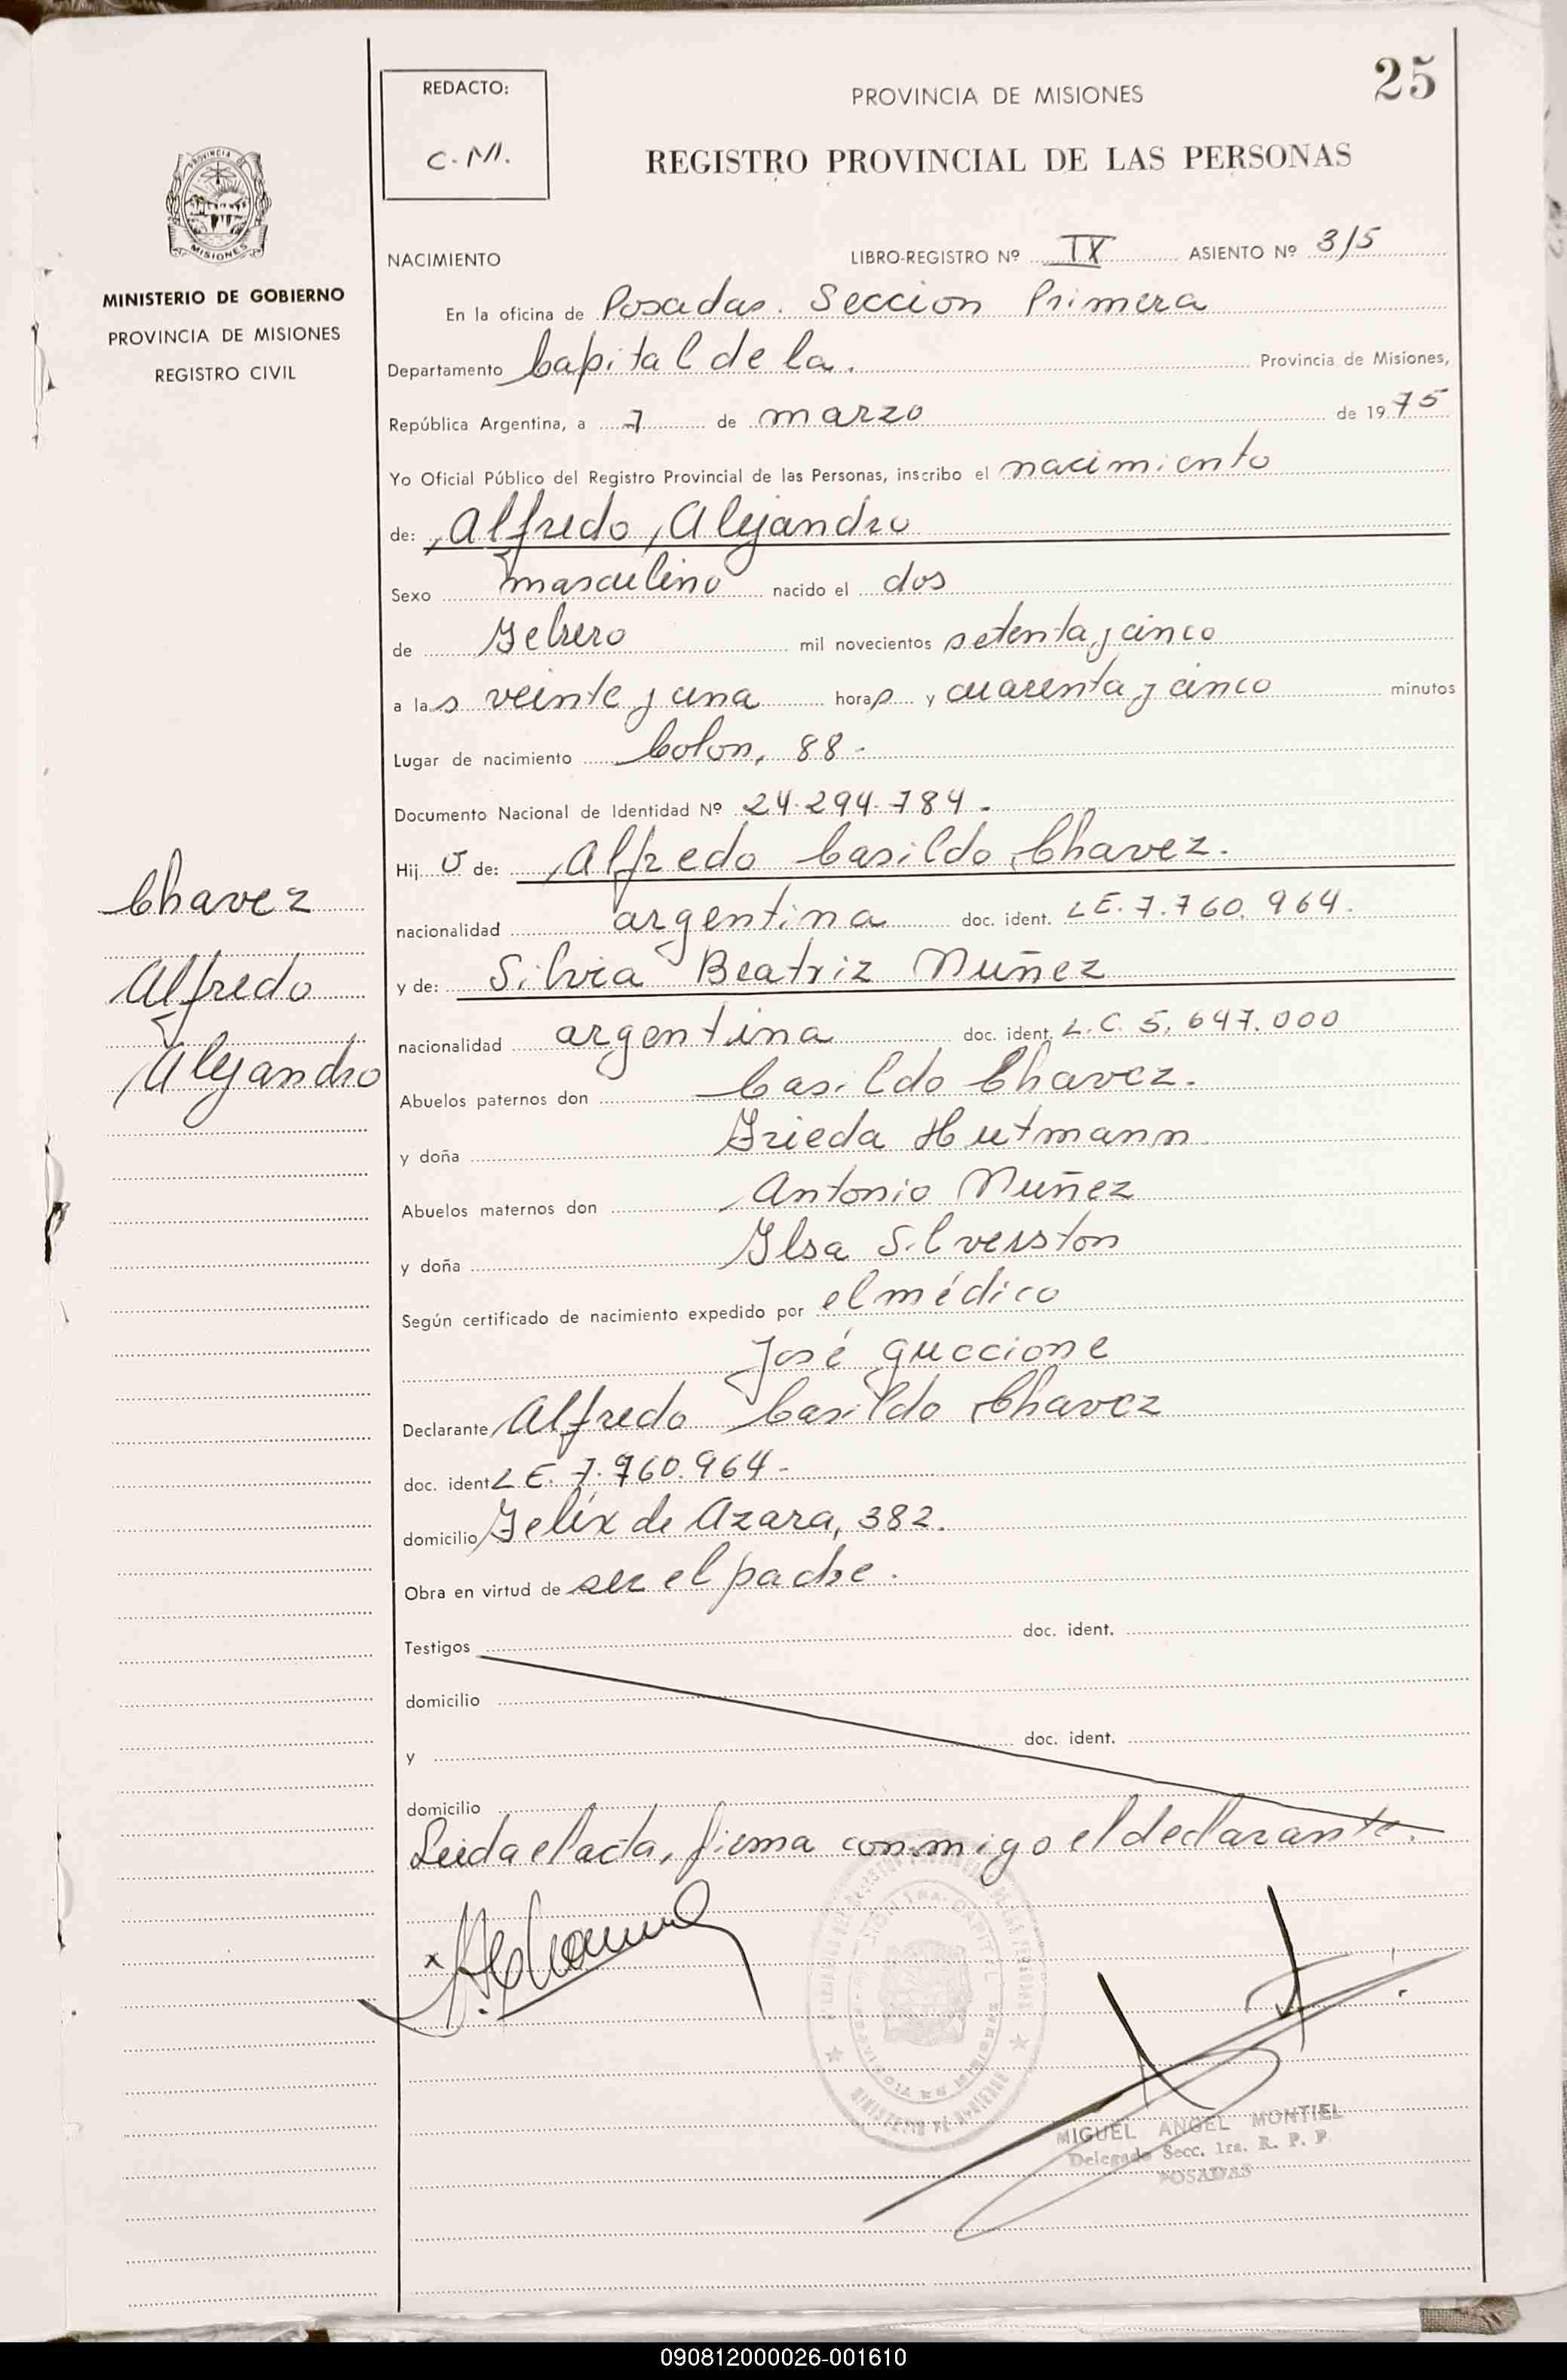 25
REDACTO:
C.M.
PROVINCIA DE MISIONES
REGISTRO PROVINCIAL DE LAS PERSONAS
PROVINCIA DE
MISIONES
MINISTERIO DE GOBIERNO
PROVINCIA DE MISIONES
REGISTRO CIVIL
NACIMIENTO LIBRO-REGISTRO Nº IX ASIENTO Nº 315
En la oficina de Posadas. Seccion Primera
Departamento Capital de la. Provincia de Misiones,
República Argentina, a 7 de marzo de 1975
Yo Oficial Público del Registro Provincial de las Personas, inscribo el nacimiento
de: Alfredo, Alejandro
Sexo masculino nacido el dos
de Febrero mil novecientos setenta y cinco
a las veinte y una horas y cuarenta y cinco minutos
Lugar de nacimiento Colon, 88-
Documento Nacional de Identidad Nº 24.294.784-
Hijo de: Alfredo Casildo Chavez.
nacionalidad argentina doc. ident. LE. 7.760.964.
y de: Silvia Beatriz Nuñez
nacionalidad argentina doc. ident. L.C. 5.647.000
Abuelos paternos don Casildo Chavez.
y doña Frieda Hutmann
Abuelos maternos don Antonio Nuñez
y doña Ilsa Silverston
Según certificado de nacimiento expedido por el médico
José Guccione
Declarante Alfredo Casildo Chavez
doc. ident LE. 7.760.964-
domicilio Felix de Azara, 382.
Obra en virtud de ser el padre.
Testigos doc. ident.
domicilio
y doc. ident.
domicilio
Leida el acta, firma conmigo el declarante.
Chavez
Alfredo
Alejandro
MIGUEL ANGEL MONTIEL
Delegado Secc. 1ra. R. P. P.
POSADAS
090812000026-001610